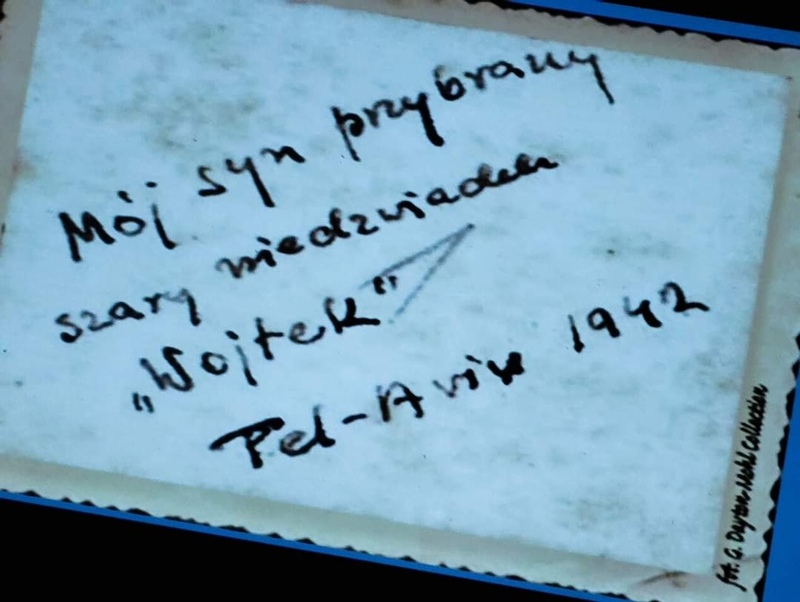 Mój syn przybrany
szary niedzwiadek
„Wojtek"
Tel-Aviv 1942
fot. G. Dayton-Mohl Collection